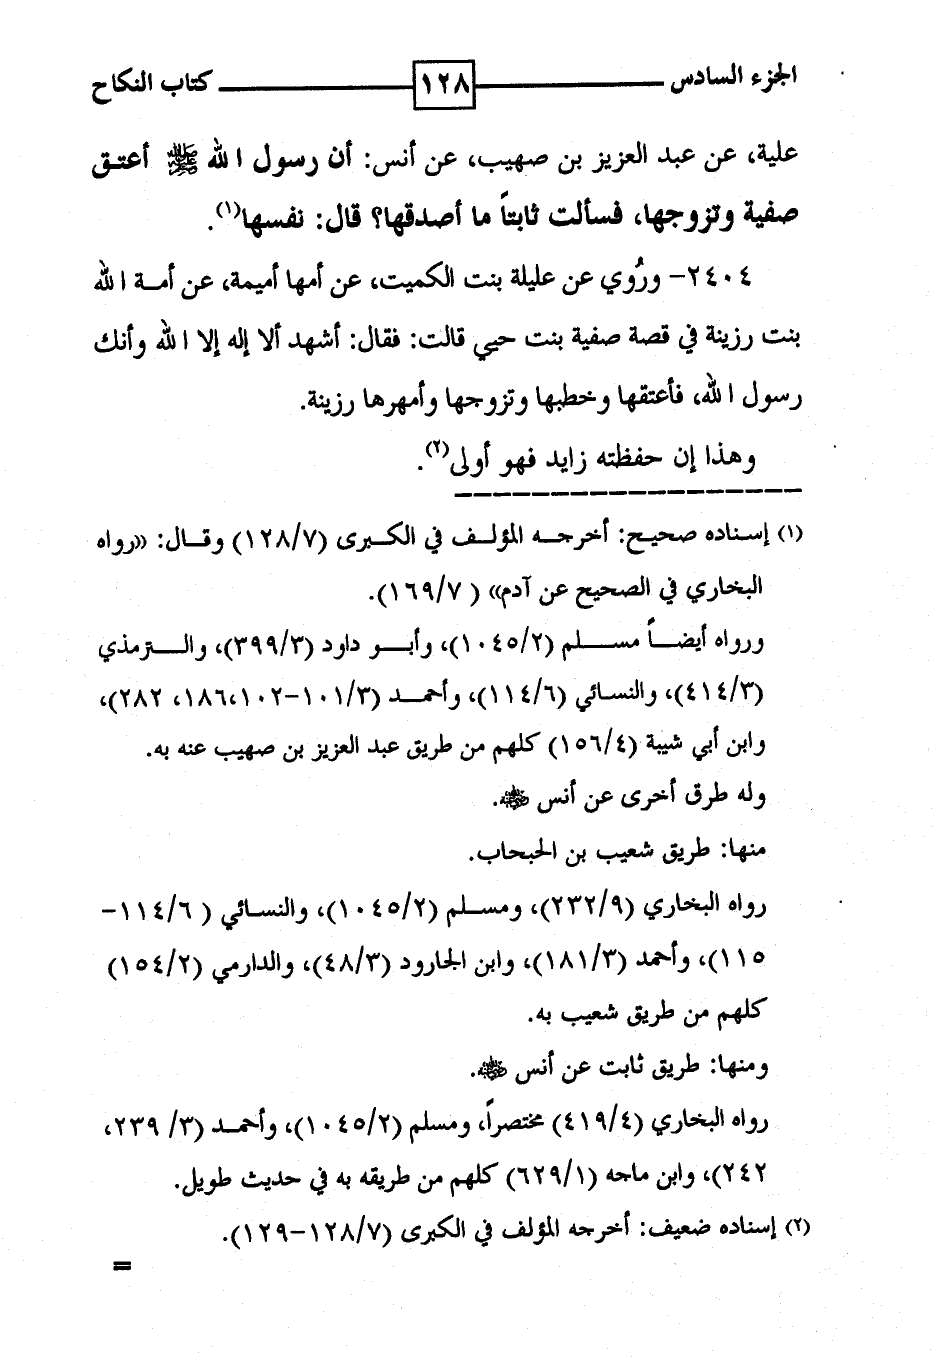 الجزء السادس ١٢٨ كتاب النكاح
علية، عن عبد العزيز بن صهيب، عن أنس: أن رسول الله ﷺ أعتق
صفية وتزوجها، فسألت ثابتاً ما أصدقها؟ قال: نفسها(١).
٢٤٠٤- ورُوي عن عليلة بنت الكميت، عن أمها أميمة، عن أمة الله
بنت رزينة في قصة صفية بنت حيي قالت: فقال: أشهد ألا إله إلا الله وأنك
رسول الله، فأعتقها وخطبها وتزوجها وأمهرها رزينة.
وهذا إن حفظته زايد فهو أولى(٢).
(١) إسناده صحيح: أخرجه المؤلف في الكبرى (١٢٨/٧) وقال: «رواه
البخاري في الصحيح عن آدم» (١٦٩/٧).
ورواه أيضاً مسلم (١٠٤٥/٢)، وأبو داود (٣٩٩/٣)، والترمذي
(٤١٤/٣)، والنسائي (١١٤/٦)، وأحمد (١٠١/٣-١٠٢،١٨٦، ٢٨٢)،
وابن أبي شيبة (١٥٦/٤) كلهم من طريق عبد العزيز بن صهيب عنه به.
وله طرق أخرى عن أنس ﷺ.
منها: طريق شعيب بن الحبحاب.
رواه البخاري (٢٣٢/٩)، ومسلم (١٠٤٥/٢)، والنسائي (١١٤/٦-
١١٥)، وأحمد (١٨١/٣)، وابن الجارود (٤٨/٣)، والدارمي (١٥٤/٢)
كلهم من طريق شعيب به.
ومنها: طريق ثابت عن أنس ﷺ.
رواه البخاري (٤١٩/٤) مختصراً، ومسلم (١٠٤٥/٢)، وأحمد (٣/ ٢٣٩،
٢٤٢)، وابن ماجه (٦٢٩/١) كلهم من طريقه به في حديث طويل.
(٢) إسناده ضعيف: أخرجه المؤلف في الكبرى (١٢٨/٧-١٢٩).
=